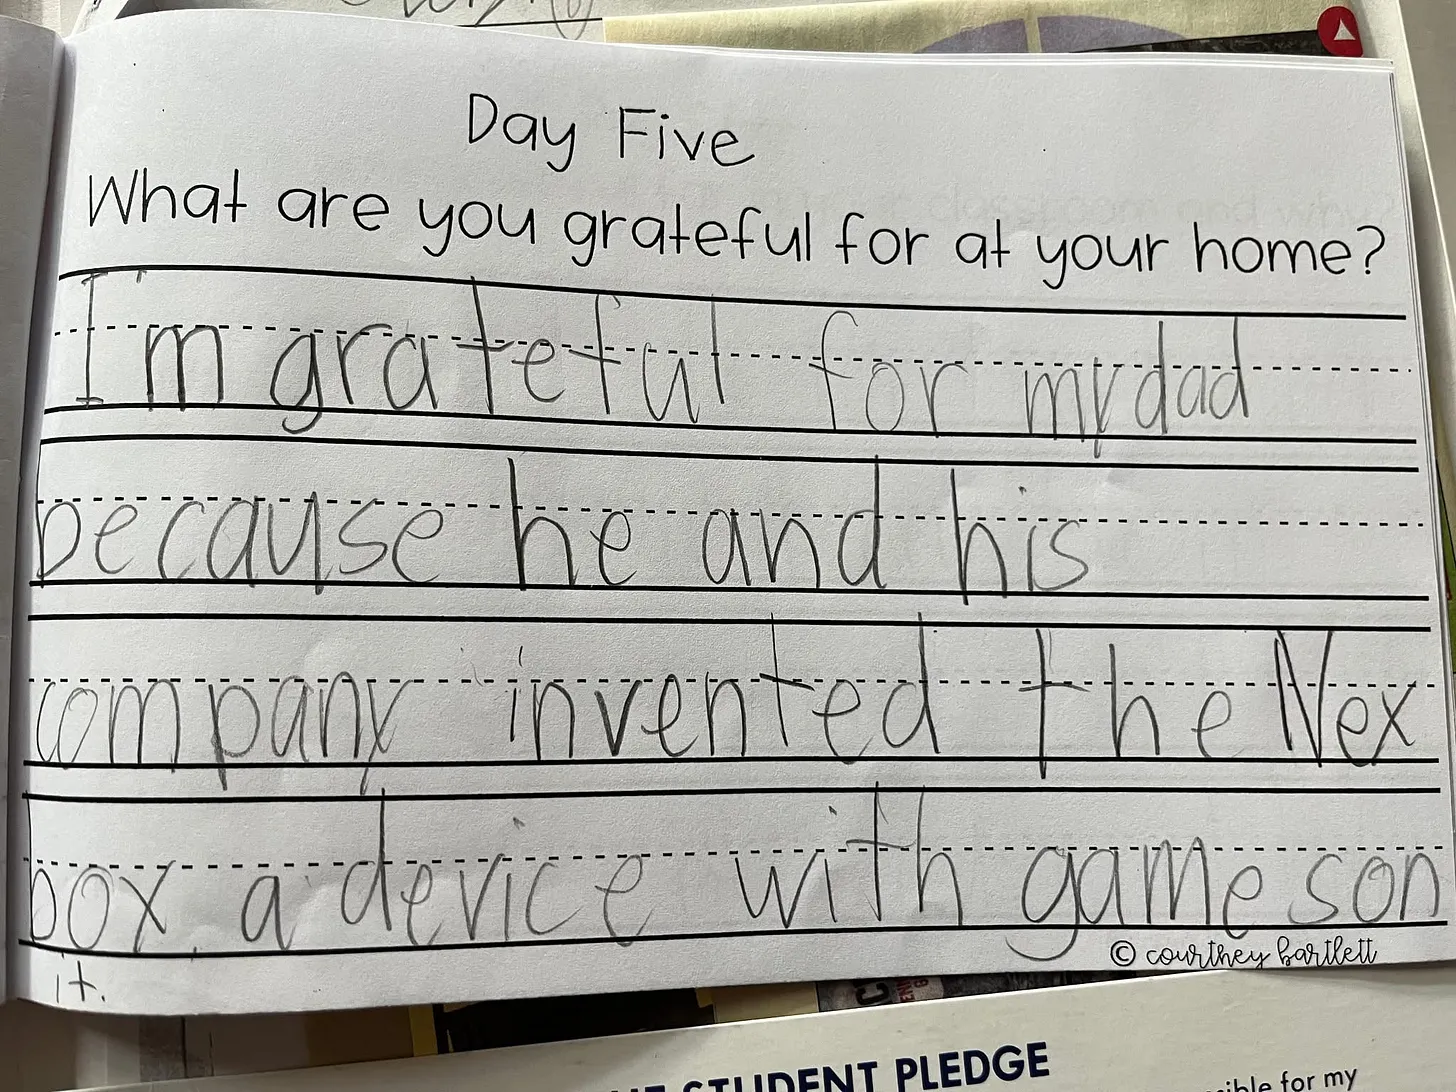 Day Five
What are you grateful for at your home?
I'm grateful for my dad
because he and his
company invented the Nex
box, a device with games on
it.
© courtney bartlett
STUDENT PLEDGE
for my